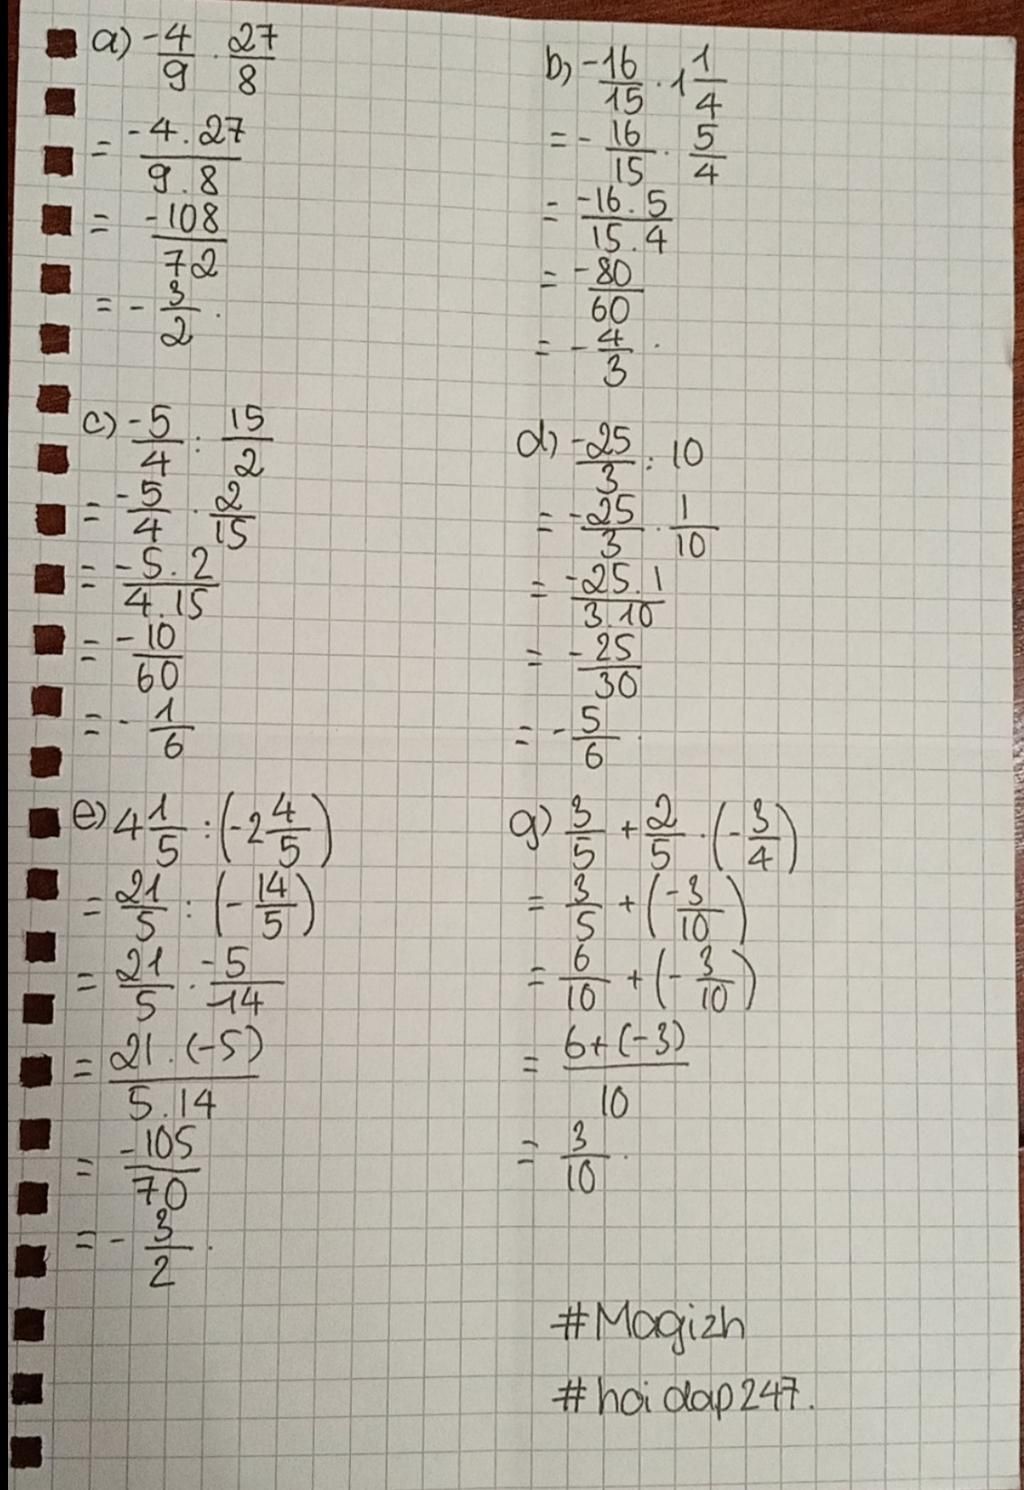 a) -4/9 . 27/8
= -4.27/9.8
= -108/72
= -3/2.
b) -16/15 . 1 1/4
= -16/15 . 5/4
= -16.5/15.4
= -80/60
= -4/3.
c) -5/4 : 15/2
= -5/4 . 2/15
= -5.2/4.15
= -10/60
= -1/6
d) -25/3 : 10
= -25/3 . 1/10
= -25.1/3.10
= -25/30
= -5/6.
e) 4 1/5 : (-2 4/5)
= 21/5 : (-14/5)
= 21/5 . -5/14
= 21.(-5)/5.14
= -105/70
= -3/2.
g) 3/5 + 2/5 . (-3/4)
= 3/5 + (-3/10)
= 6/10 + (-3/10)
= 6+(-3)/10
= 3/10.
#Magizh
#hoidap247.